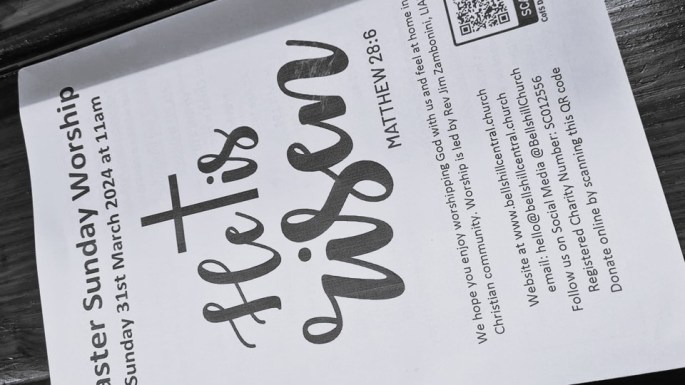 Easter Sunday Worship
Sunday 31st March 2024 at 11am
He is
risen
MATTHEW 28:6
We hope you enjoy worshipping God with us and feel at home in
Christian community. Worship is led by Rev Jim Zambonini, LIA
Website at www.bellshillcentral.church
email: hello@bellshillcentral.church
Follow us on Social Media @BellshillChurch
Registered Charity Number: SC012556
Donate online by scanning this QR code